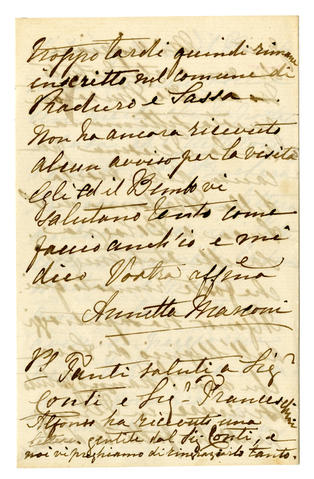 troppo tardi quindi rimane
inscritto nel comune di
Praduro e Sasso.
Non ha ancora ricevuto
alcun avviso per la visita
Egli ed il Bimbo vi
salutano tanto come
faccio anch'io e mi
dico Vostra affma
Annetta Marconi
PS Tanti saluti a Sigr
Conti e Sigr Franceschini
Alfonso ha ricevuto una
gentile dal Sig Conti, e
noi vi preghiamo di ringraziarlo tanto.